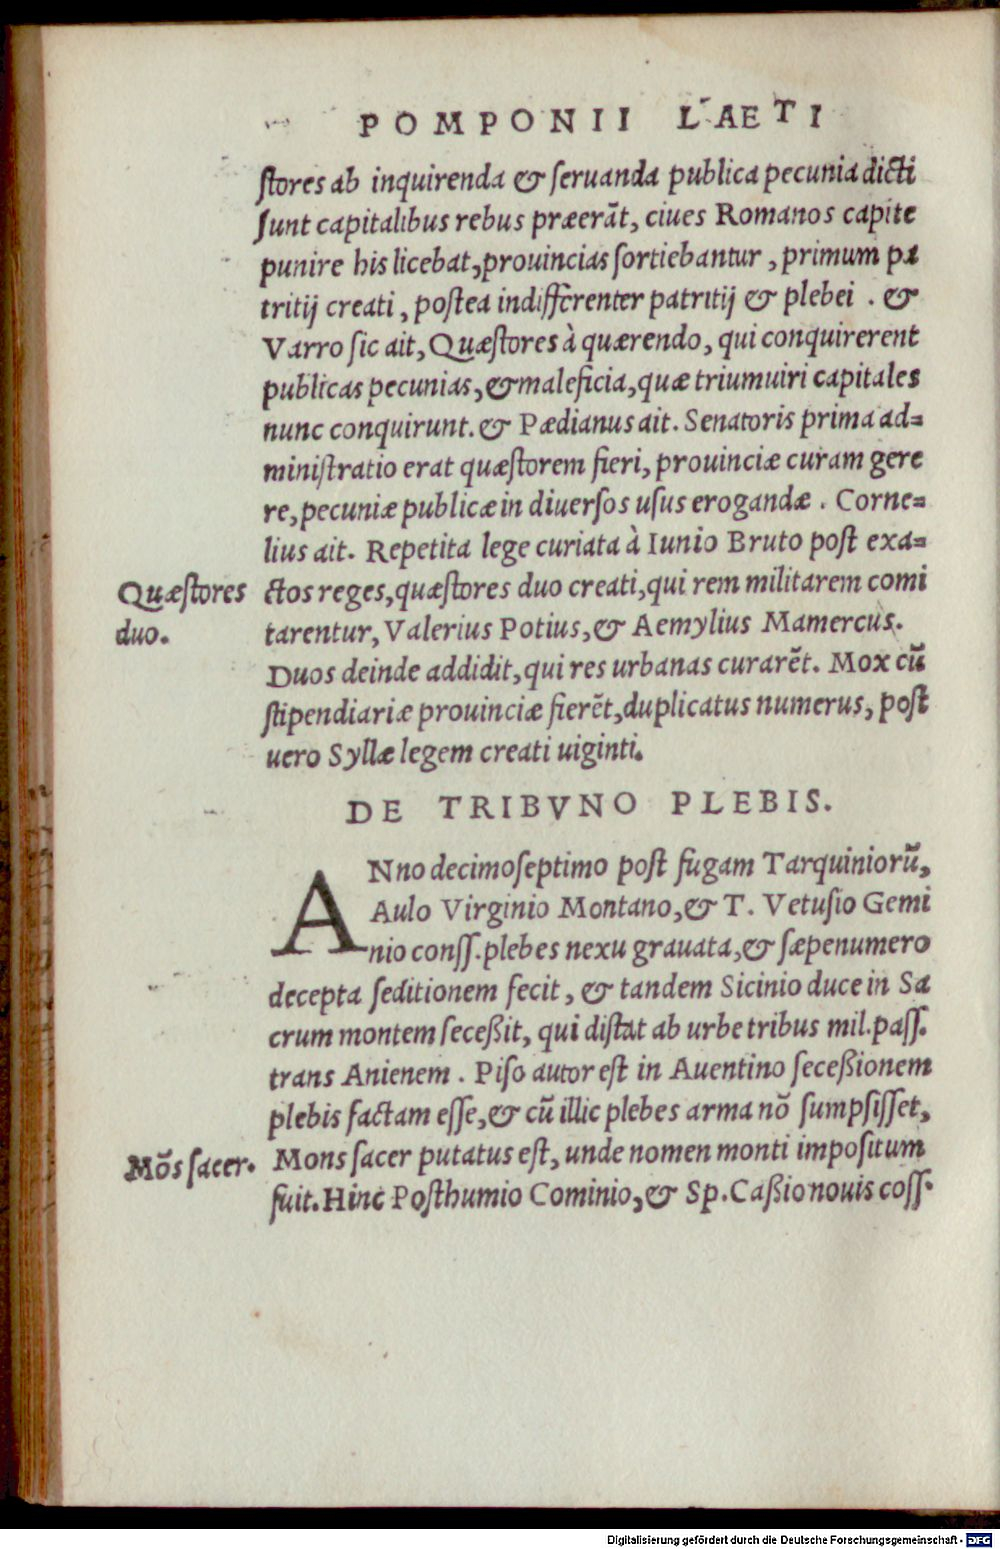 POMPONII LAETI
ſtores ab inquirenda & ſeruanda publica pecunia dicti
ſunt capitalibus rebus præerāt, ciues Romanos capite
punire his licebat, prouincias ſortiebantur, primum pa
tritij creati, poſtea indifferenter patritij & plebei . &
Varro ſic ait, Quæſtores à quærendo, qui conquirerent
publicas pecunias, & maleficia, quæ triumuiri capitales
nunc conquirunt. & Pædianus ait. Senatoris prima ad=
miniſtratio erat quæſtorem fieri, prouinciæ curam gere
re, pecuniæ publicæ in diuerſos uſus erogandæ . Corne=
lius ait. Repetita lege curiata à Iunio Bruto poſt exa=
Quæſtores
duo.
ctos reges, quæſtores duo creati, qui rem militarem comi
tarentur, Valerius Potius, & Aemylius Mamercus.
Duos deinde addidit, qui res urbanas curarēt. Mox cū
ſtipendiariæ prouinciæ fierēt, duplicatus numerus, poſt
uero Syllæ legem creati uiginti.
DE TRIBVNO PLEBIS.
ANno decimoſeptimo poſt fugam Tarquiniorū,
Aulo Virginio Montano, & T. Vetuſio Gemi
nio conſſ. plebes nexu grauata, & ſæpenumero
decepta ſeditionem fecit, & tandem Sicinio duce in Sa
crum montem ſeceßit, qui diſtat ab urbe tribus mil.paſſ.
trans Anienem . Piſo autor eſt in Auentino ſeceßionem
plebis factam eſſe, & cū illic plebes arma nō ſumpſiſſet,
Mōs ſacer.
Mons ſacer putatus eſt, unde nomen monti impoſitum
fuit. Hinc Poſthumio Cominio, & Sp. Caßio nouis coſſ.
Digitalisierung gefördert durch die Deutsche Forschungsgemeinschaft - DFG